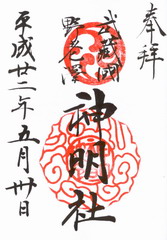 奉拝
武蔵國
野老澤
神明社
平成廿二年五月卅日